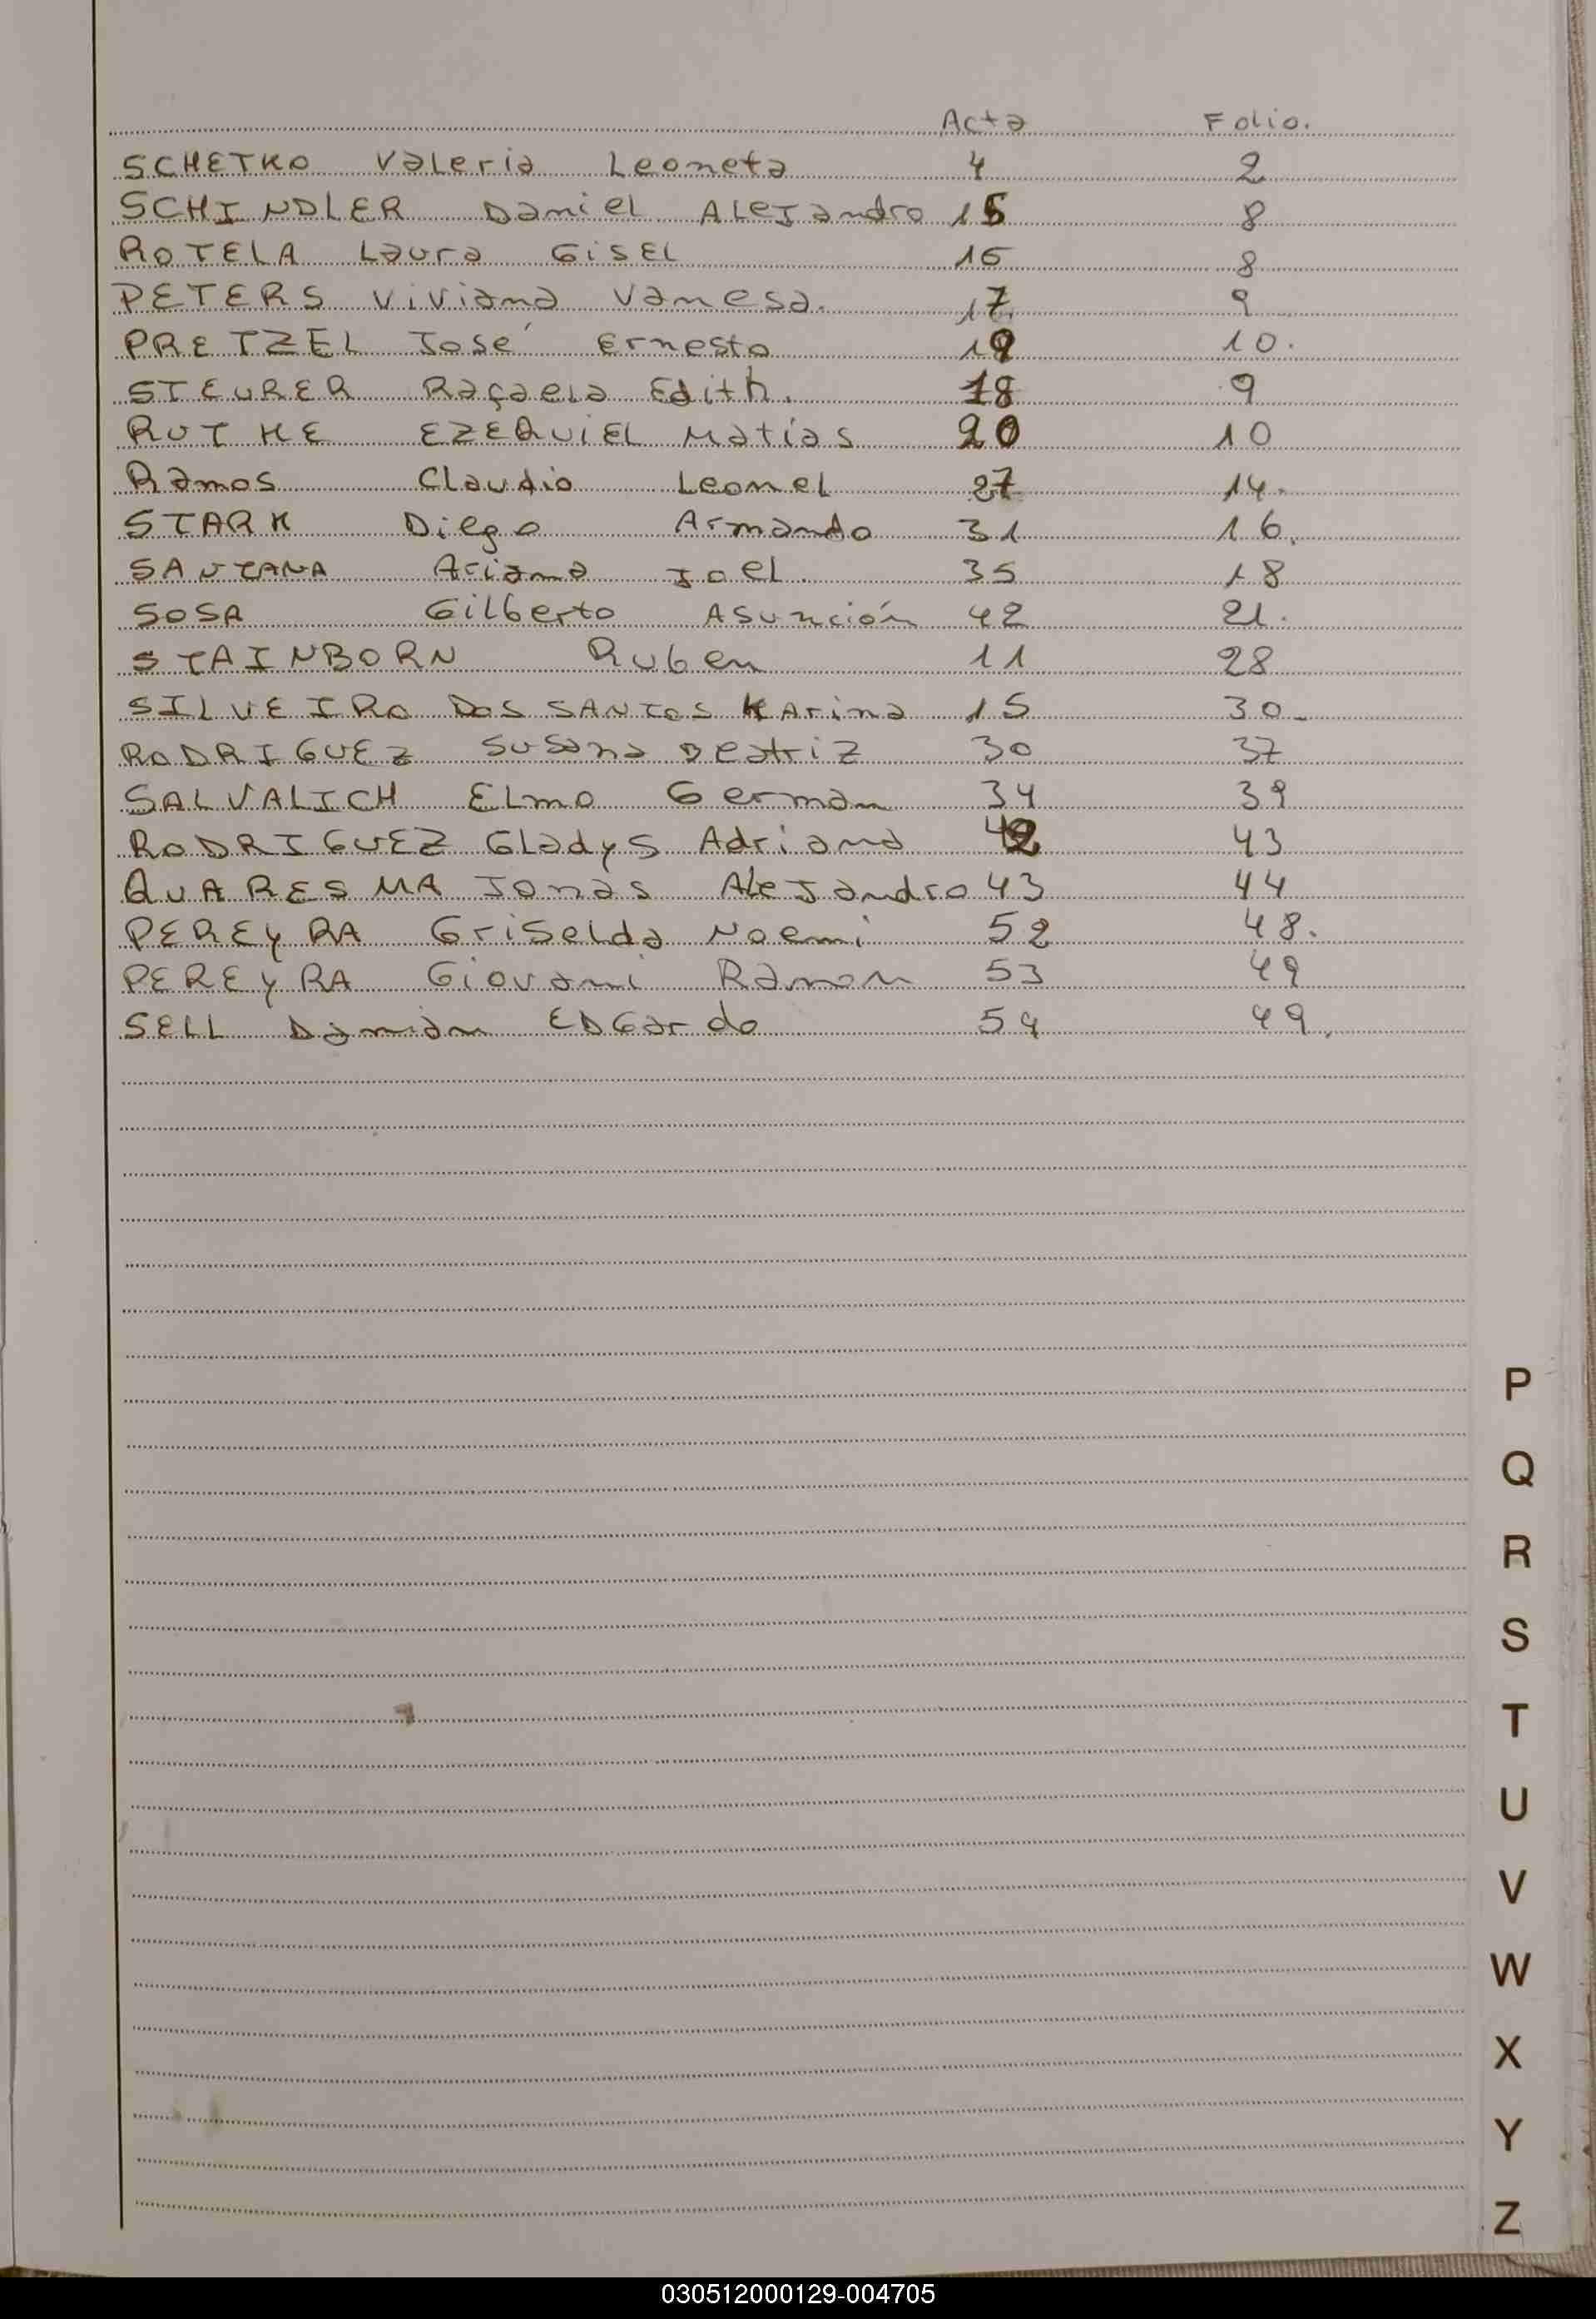 Acta Folio.
SCHETKO Valeria Leoneta 4 2
SCHINDLER Daniel Alejandro 15 8
ROTELA Laura Gisel 16 8
PETERS Viviana Vanesa. 17. 9
PRETZEL José Ernesto 19 10.
STEURER Raçaela Edith. 18 9
RUTKE EZEQUIEL Matías 20 10
Ramos Claudio Leonel 27 14.
STARK Diego Armando 31 16.
SANTANA Ariana Joel. 35 18
SOSA Gilberto Asunción 42 21.
STAINBORN Ruben 11 28
SILVEIRO DOS SANTOS KArina 15 30-
RODRIGUEZ Susana Beatriz 30 37
SALVALICH Elmo German 34 39
RODRIGUEZ Gladys Adriana 42 43
QUARESMA Jonas Alejandro 43 44
PEREYRA Griselda Noemi 52 48.
PEREYRA Giovani Ramon 53 49
SELL Damián EDGardo 54 49.
P
Q
R
S
T
U
V
W
X
Y
Z
030512000129-004705